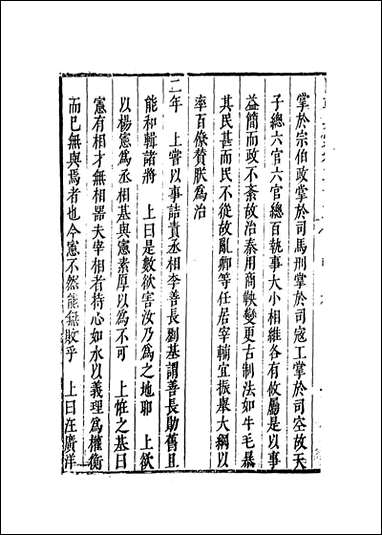 掌於宗伯政掌於司馬刑掌於司寇工掌於司空故天
子總六官六官總百執事大小相維各有攸屬是以事
益簡而政不紊故治秦用商鞅變更古制法如牛毛暴
其民甚而民不從故亂卿等任居宰輔宜振舉大綱以
率百僚贊朕為治
二年　上嘗以事詰責丞相李善長劉基謂善長勛舊且
能和輯諸將　上曰是數欲害汝乃為之地耶　上欲
以楊憲為丞相基與憲素厚以為不可　上怪之基曰
憲有相才無相器夫宰相者持心如水以義理為權衡
而已無與焉者也今憲不然能無敗乎　上曰汪廣洋